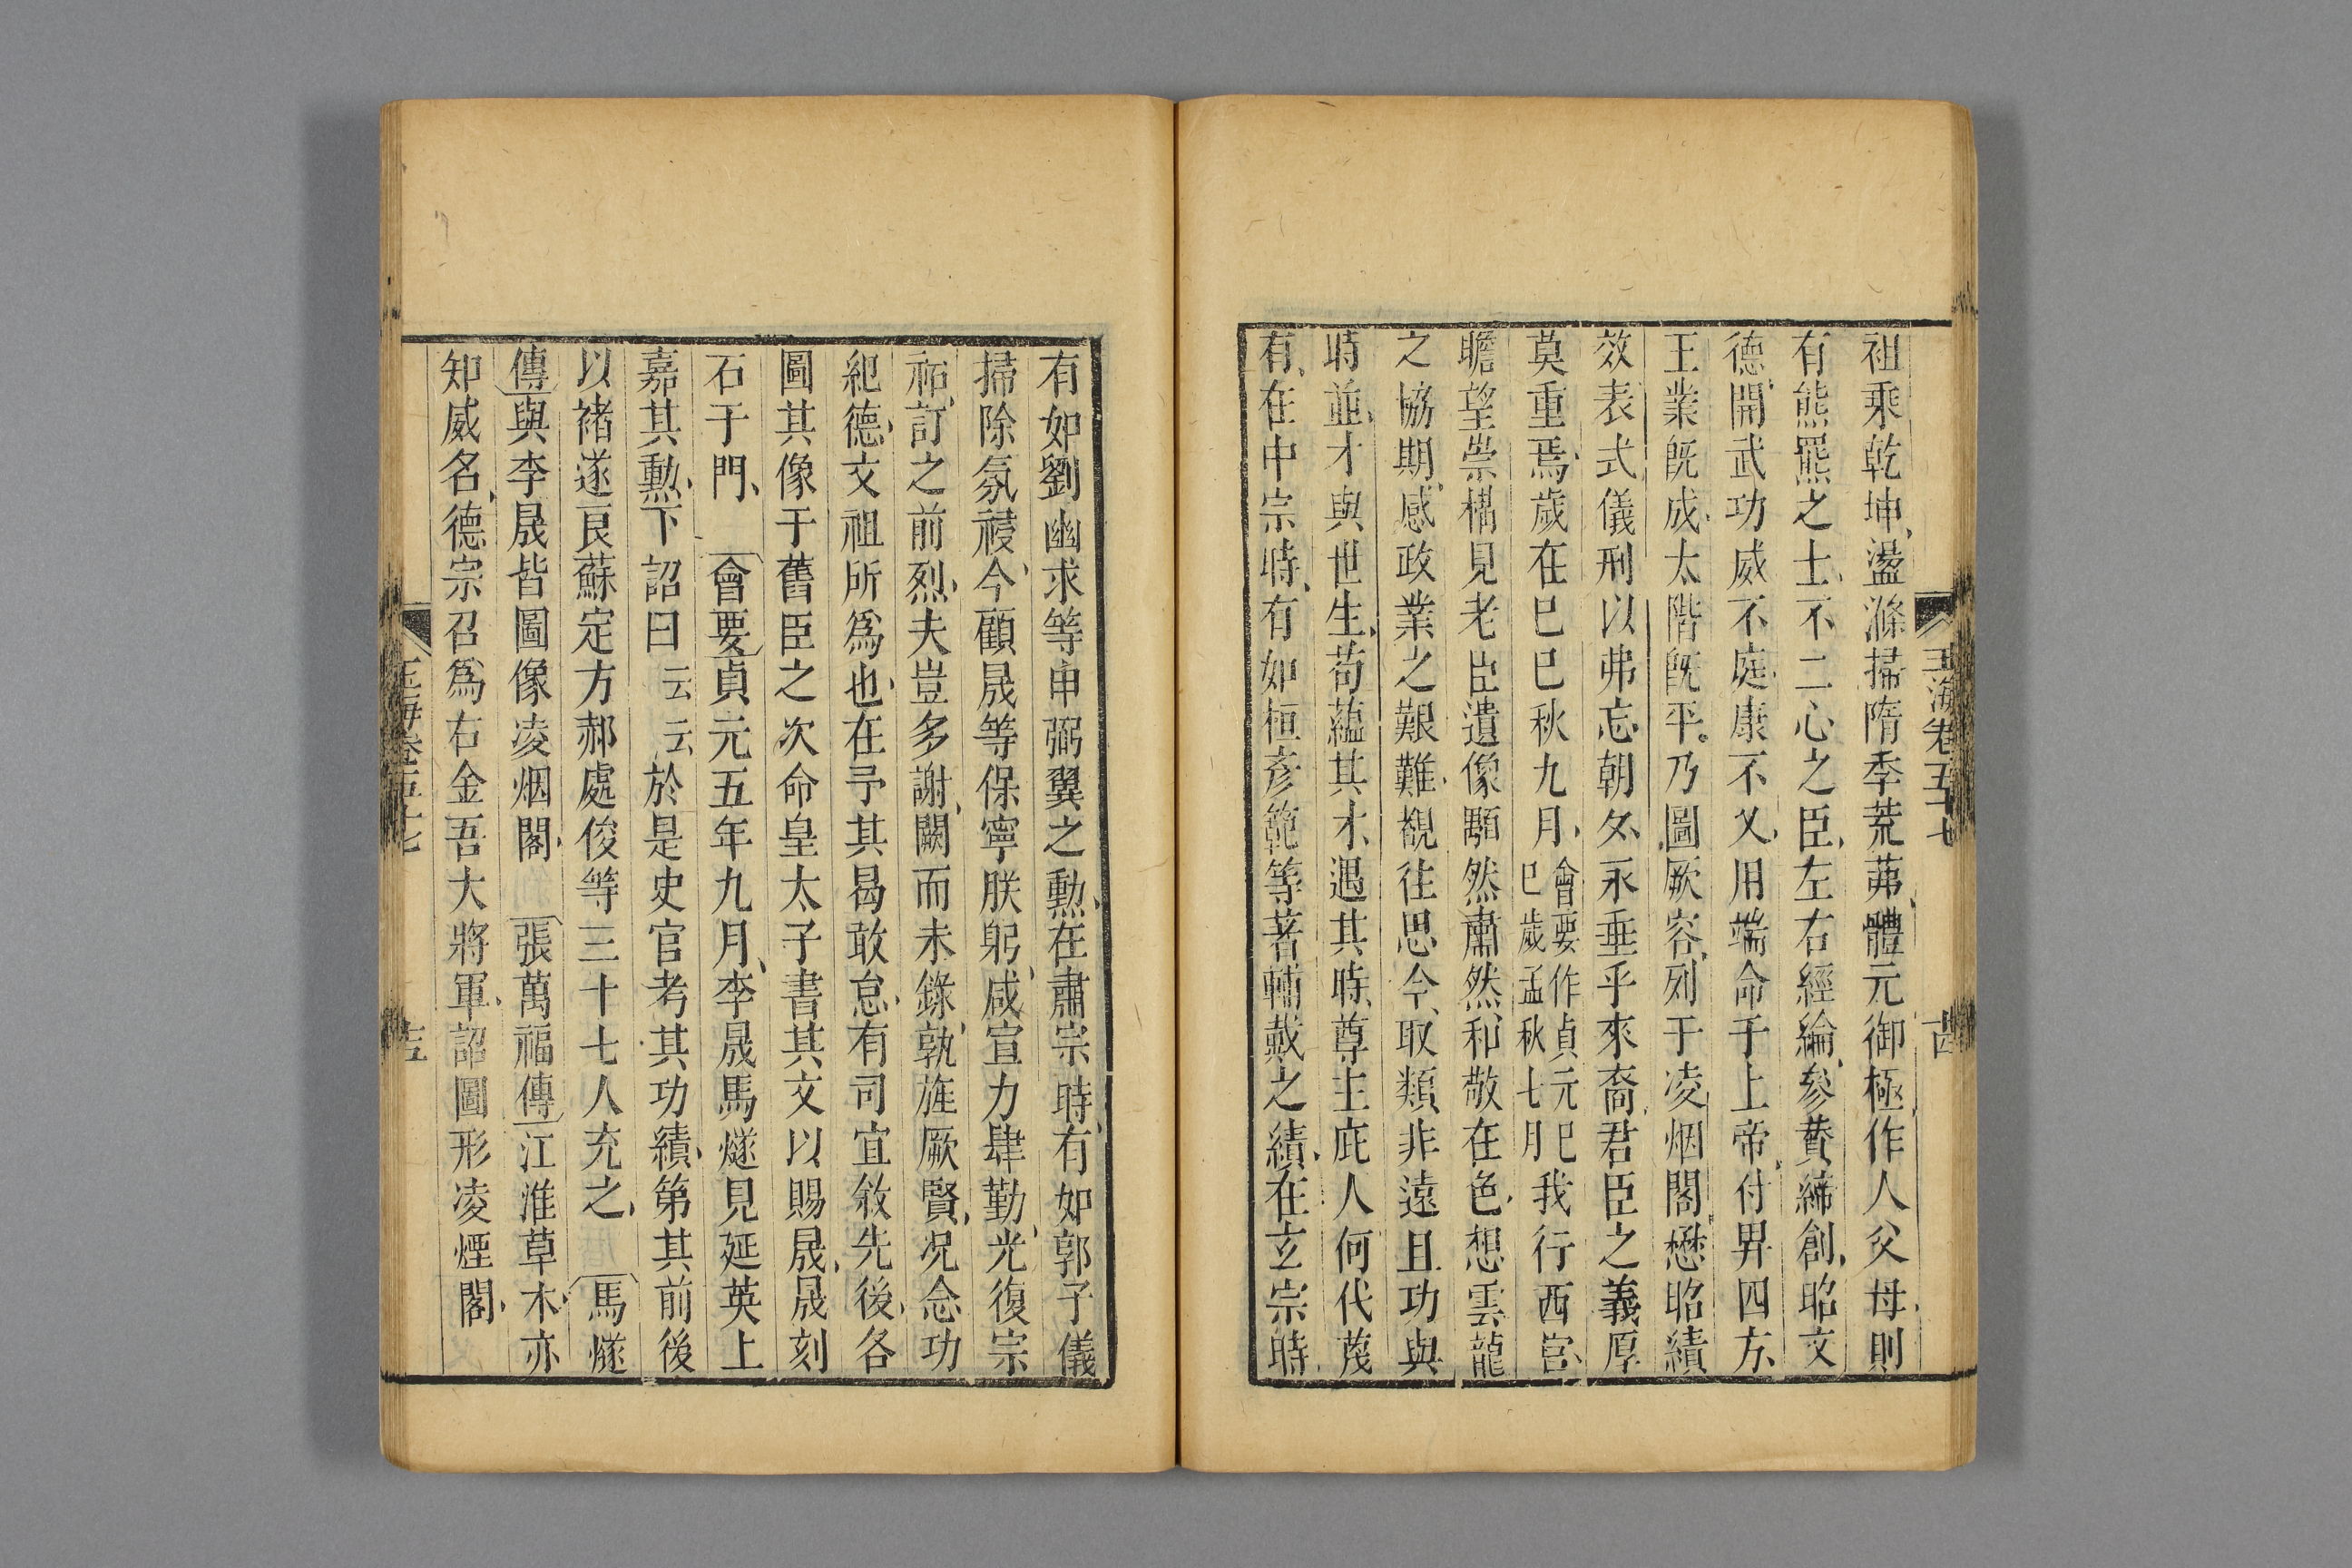 祖乘乾坤盪滌掃隋季荒茀體元御極作人父母則
有熊羆之士不二心之臣左右經綸參贊締創昭文
德開武功威不庭康不乂用端命于上帝付畀四方
王業旣成太階旣平乃圖厥容列于凌烟閣懋昭績
效表式儀刑以弗忘朝夕永垂乎來裔君臣之義厚
莫重焉歲在巳巳秋九月會要作貞元巳巳歲孟秋七月我行西宮
瞻望崇構見老臣遺像顒然肅然和敬在色想雲龍
之協期感政業之艱難覩往思今取類非遠且功與
時並才與世生苟蘊其才遇其時尊主庇人何代蔑
有在中宗時有如桓彥範等著輔戴之績在玄宗時
玉海卷五十七
有如劉幽求等申弼翼之勲在肅宗時有如郭子儀
掃除氛祲今顧晟等保寧朕躬咸宣力肆勤光復宗
祏訂之前烈夫豈多謝闕而未錄孰旌厥賢况念功
紀德文祖所爲也在予其曷敢怠有司宜敘先後各
圖其像于舊臣之次命皇太子書其文以賜晟晟刻
石于門會要貞元五年九月李晟馬燧見延英上
嘉其勲下詔曰云云於是史官考其功績第其前後
以褚遂良蘇定方郝處俊等三十七人充之馬燧
傳與李晟皆圖像凌烟閣張萬福傳江淮草木亦
知威名德宗召爲右金吾大將軍詔圖形凌煙閣
玉海卷五十七